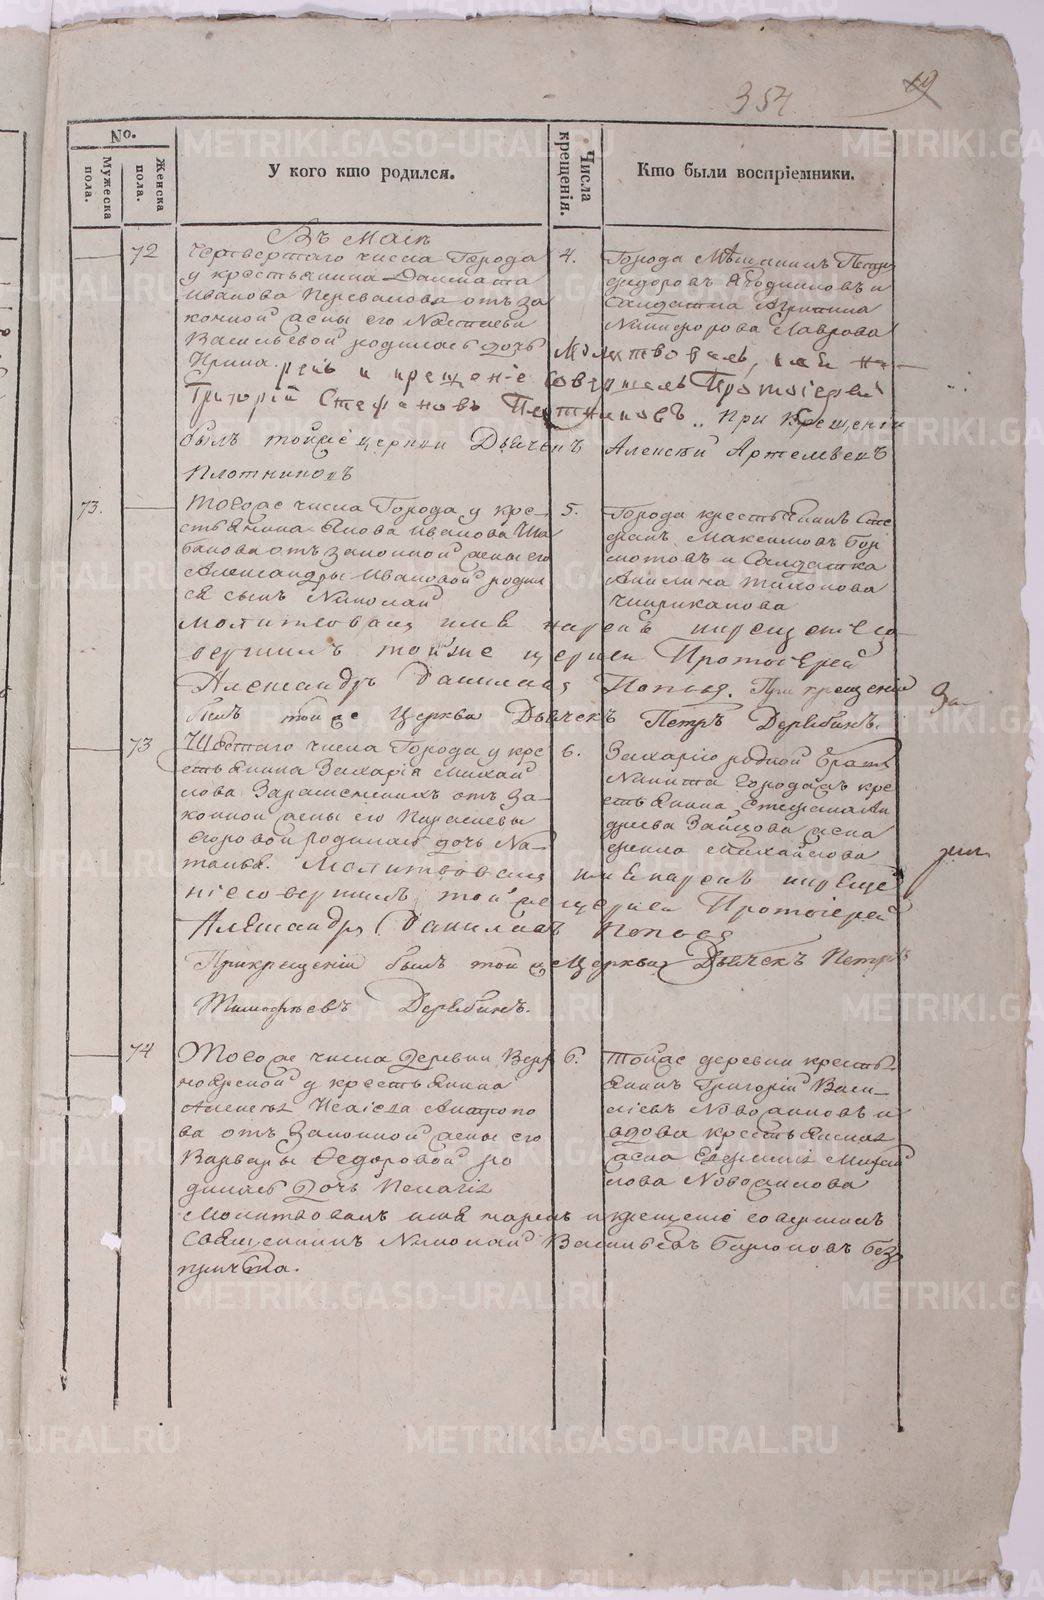 354
19
No.
Мужеска пола.
Женска пола.
У кого кто родился.
Числа крещенія.
Кто были воспріемники.
Въ Маіѣ
72
Четвертаго числа Города
у крестьянина Далмата
Иванова Перевалова отъ за
конной жены его Настасьи
Васильевой родилась дочь
Ирина.
4.
Города Мѣщанинъ Петръ
Федоровъ Ягодниковъ и
Солдатка Агрипина
Никифорова Лаврова
Молитвовалъ, имя на-
речь и крещеніе совершилъ Протоіерей
Григорій Стефановъ Плотниковъ. При Крещеніи
былъ тойже церкви Дьячекъ Алексѣй Артемьевъ
Плотниковъ
73.
Тогоже числа Города у кре-
стьянина Якова Иванова Ша
банова отъ законной жены его
Александры Ивановой родил
ся сынъ Николай
5.
Города крестьянинъ Сте
фанъ Максимовъ Бор
мотовъ и Солдатка
Акилина Тихонова
Чирикалова
Молитвовалъ имя нарекъ и крещеніе со-
вершилъ тойже церкви Протоіерей
Александръ Даниловъ Поповъ. При крещеніи
былъ тойже Церкви Дьячекъ Петръ Дерябинъ.
За
73
Шестаго числа Города у кре
стьянина Захарія Михай
лова отъ за-
конной жены его Параскевы
Егоровой родилась дочь На-
талья.
6.
Захарію родной братъ
Никита Города кре
стьянина Стефана Ан
дреева Зайцова жена
Михайлова
Молитвовалъ имя нарекъ и креще
ніе совершилъ тойже церкви Протоіерей
Александръ Даниловъ Поповъ
При крещеніи былъ тойже Церкви Дьячекъ Петръ
Тимофѣевъ Дерябинъ.
74
Тогоже числа Деревни Верх
ноярской у крестьянина
Алексѣя Исаіева Антропо
ва отъ законной жены его
Варвары Ѳедоровой ро
дилась дочь Пелагія
6.
Тойже деревни кресть
янинъ Григорій Васи-
ліевъ Новожиловъ и
вдова крестьянская
жена Евфимія Михай
лова Новожилова
Молитвовалъ имя нарекъ и крещеніе совершилъ
Священникъ Николай Васильевъ Бирюковъ безъ
причта.
METRIKI.GASO-URAL.RU